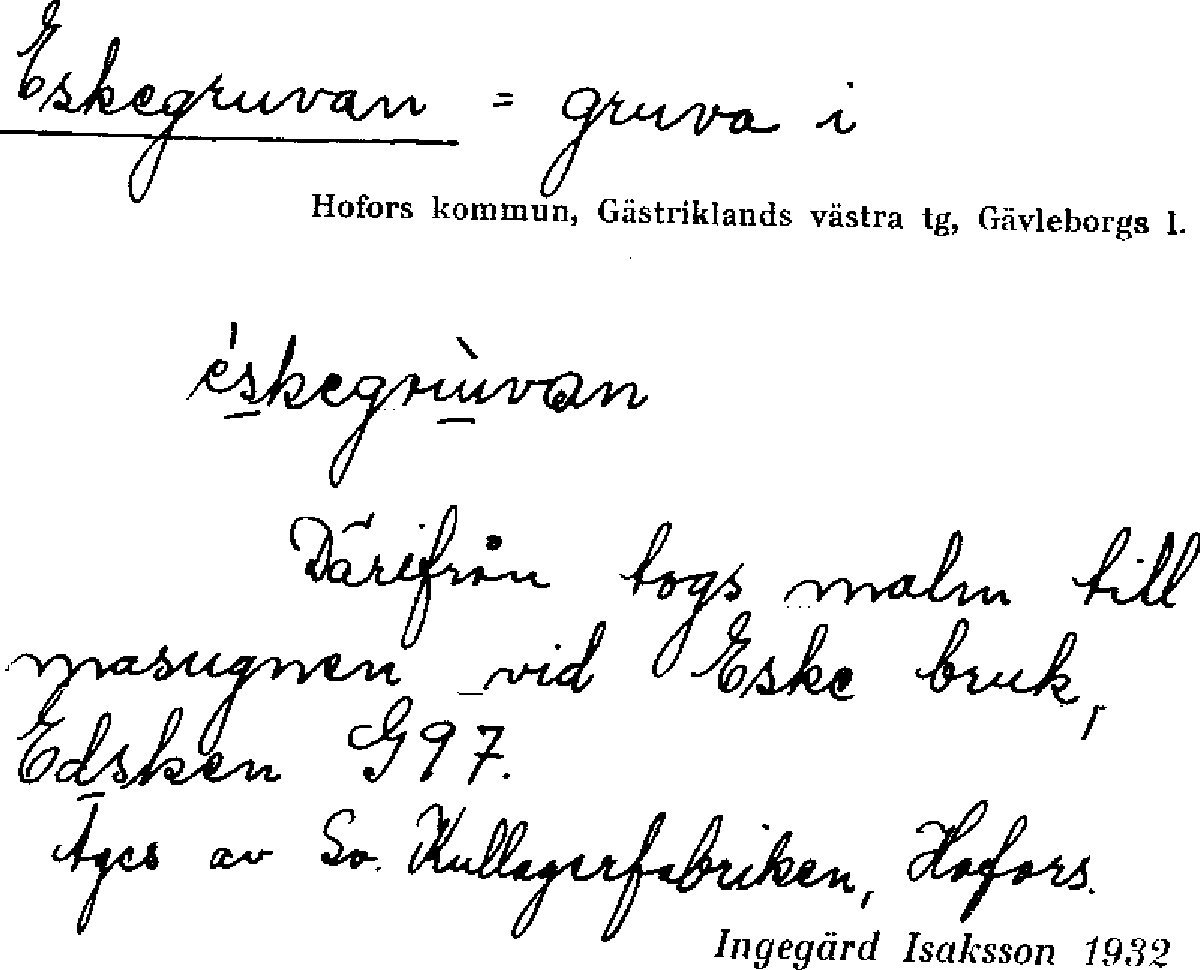 Eskegruvan = gruva i
Hofors kommun, Gästriklands västra tg, Gävleborgs l.
éskegrùvan
Därifrån togs malm till
masugnen vid Eske bruk,
Edsken G97.
Äges av Sv. Kullagerfabriken, Hofors.
Ingegärd Isaksson 1932